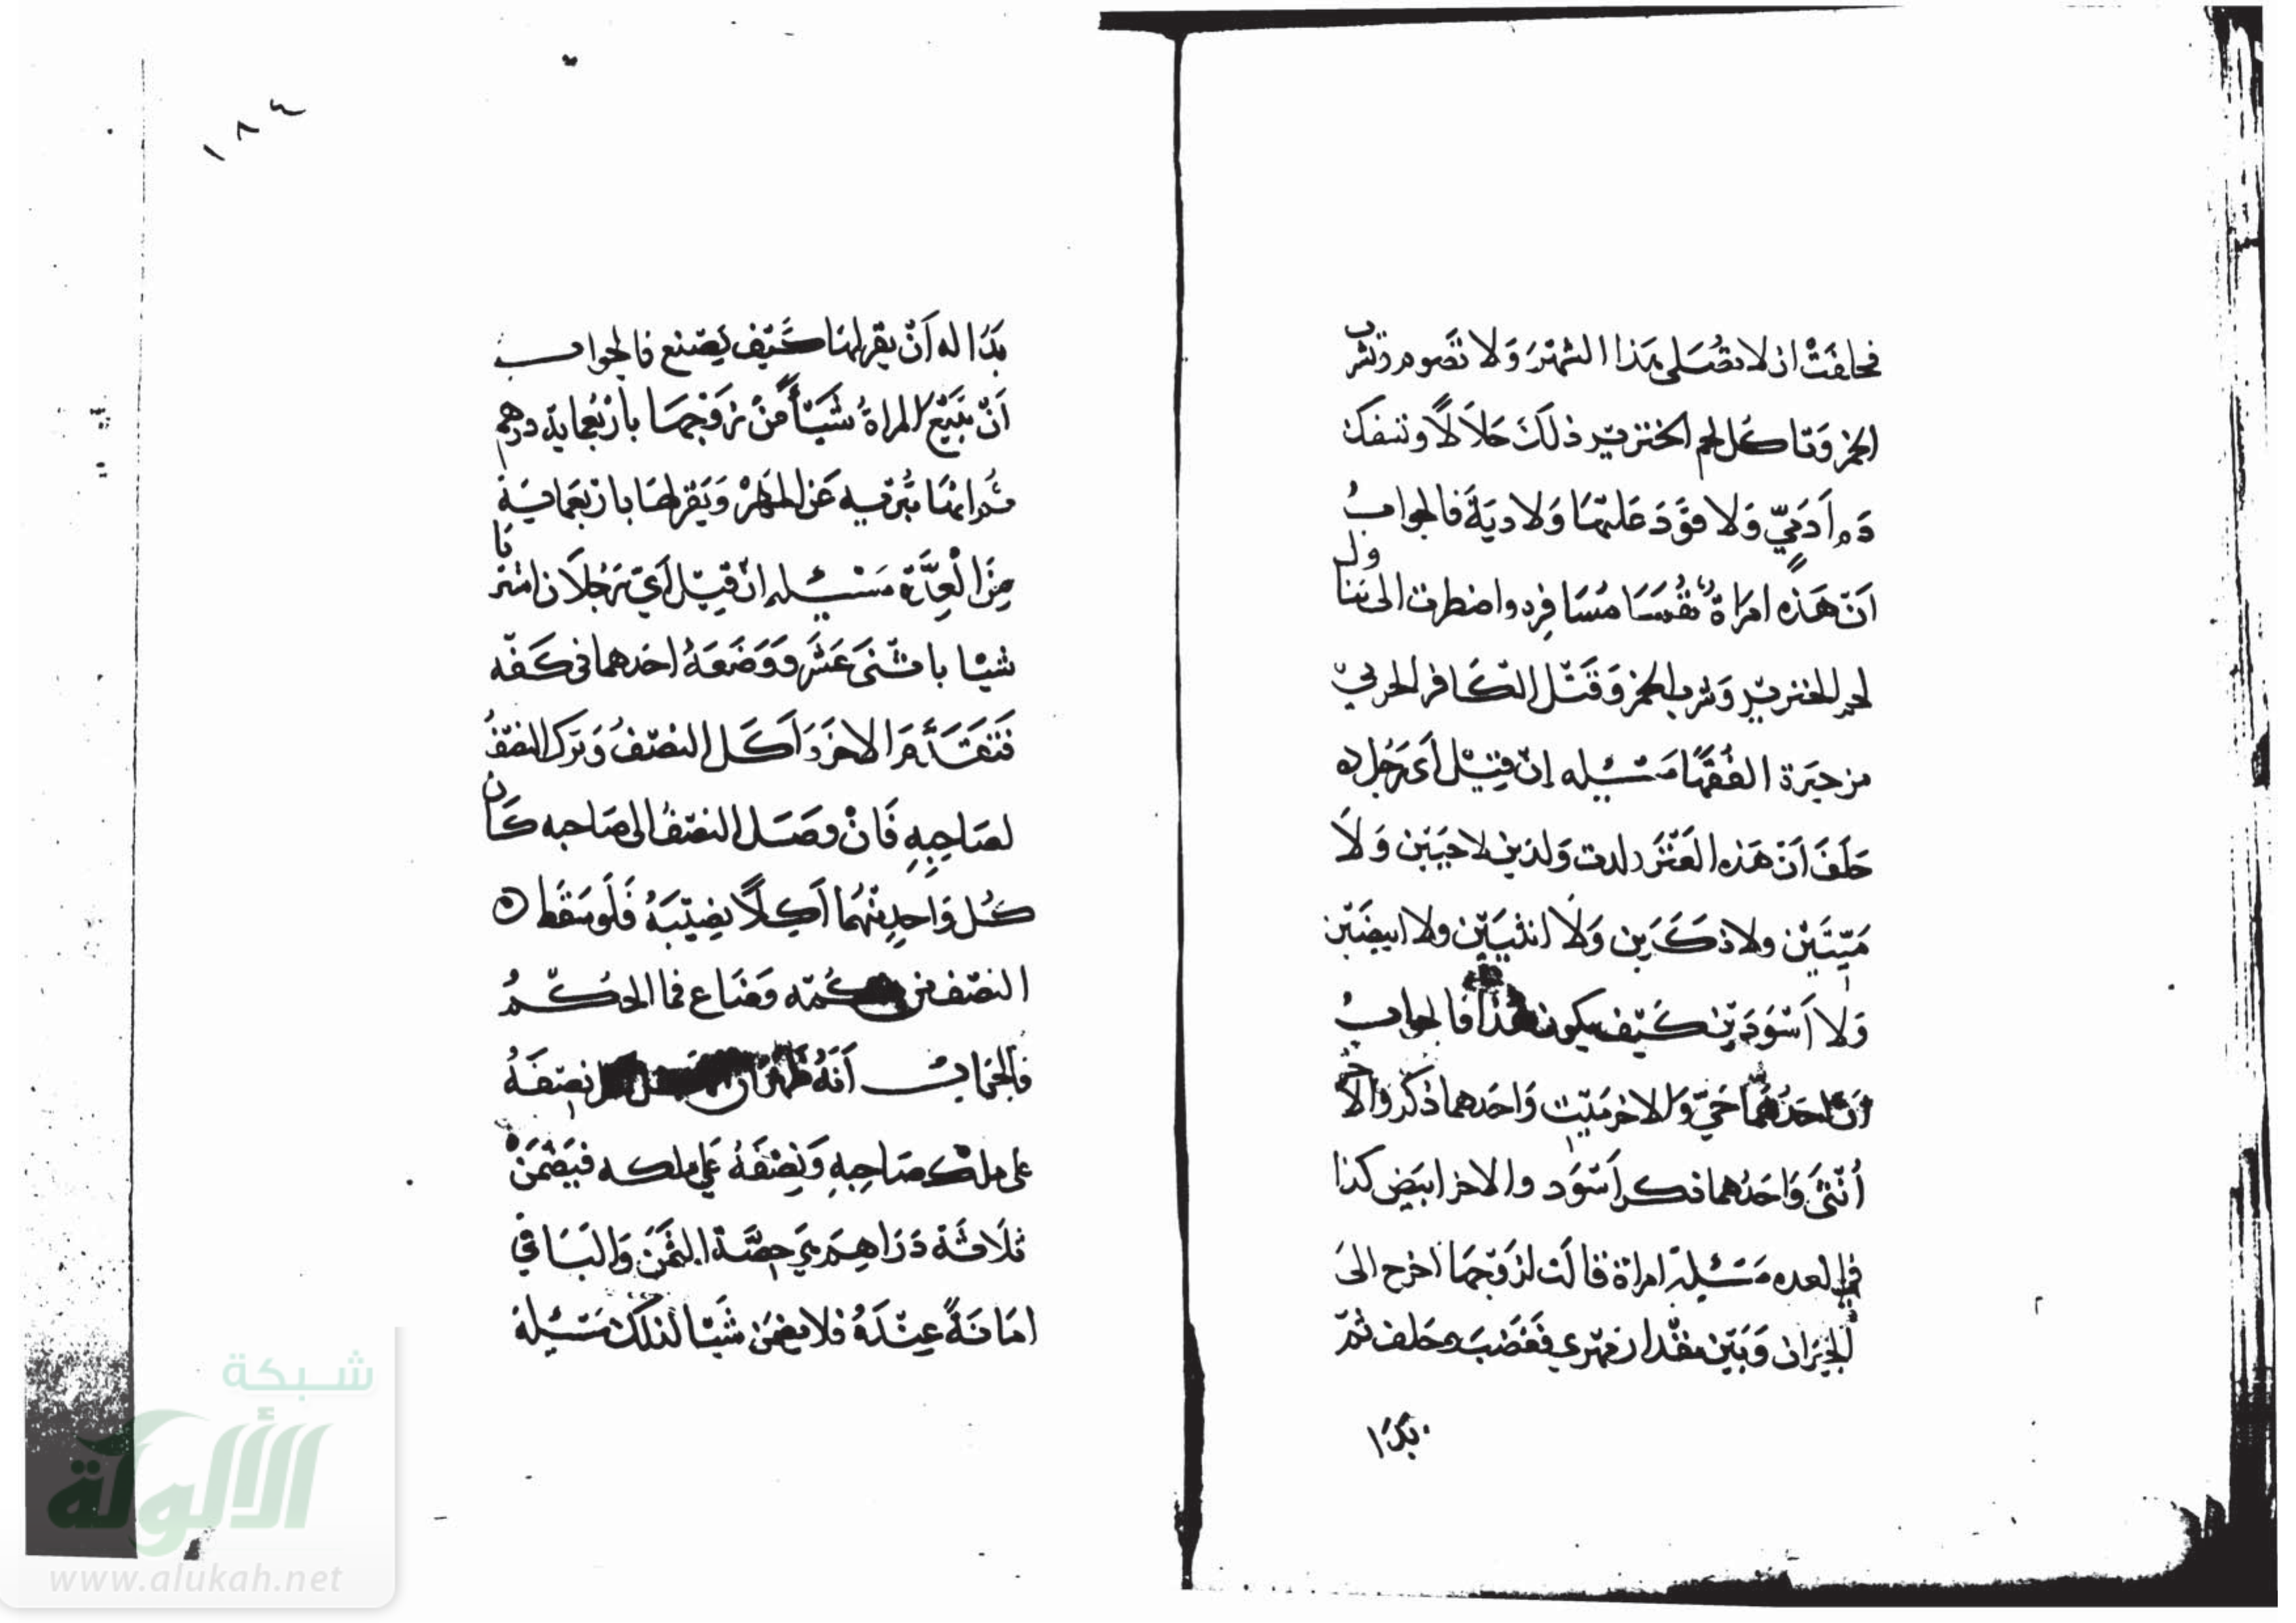 فحلفت ان لا تصلي هذا الشهر ولا تصوم وتشرب
الخمر وتاكل لحم الخنزير ذلك حلالا وتسفك
دم ادمي ولا قود عليها ولا دية فالجواب
ان هذه امراة نفسا مسافره واضطرت الى تناول
لحم الخنزير وشرب الخمر وقتل الكافر الحربي
من حيرة الفقها مسئله ان قيل اي رجل
حلف ان هذه العنز ولدت ولدين لا حيين ولا
ميتين ولا ذكرين ولا انثيين ولا ابيضين
ولا اسودين كيف يكون هذا فالجواب
ان احدهما حي والاخر ميت واحدهما ذكر والاخر
انثى واحدهما ذكر اسود والاخر ابيض كذا
في العده مسئلة امراة قالت لزوجها اخرج الى
الجيران وبين مقدار مهري فغضب وحلف ثم
بدا
١٨٤
بدا له ان يقر لها كيف يصنع فالجواب
ان تبيع المراة شيئا من زوجها باربعماية درهم
ثم انها تبريه عن المهر ويقر لها باربعماية
من العدة مسئله ان قيل اي رجلان اشتريا
شيئا باثنى عشر ووضعه احدهما في كفه
فتقدم الاخر واكل النصف وترك النصف
لصاحبه فان وصل النصف الى صاحبه كان
كل واحد منهما اكلا نصيبه فلو سقط
النصف من كمه وضاع فما الحكم
فالجواب انه ظهر ان نصفه
على ملك صاحبه ونصفه على ملكه فيضمن
ثلاثة دراهم هي حصة الثمن والباقي
امانة عنده فلا يضمن شيئا لذلك مسئلة
شبكة
الألوكة
www.alukah.net